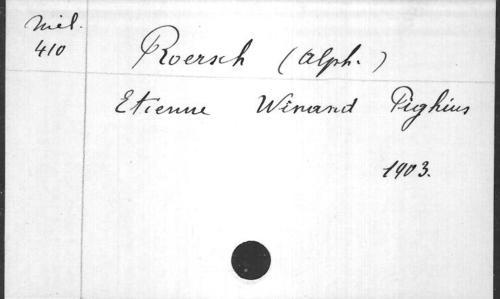 Mél.
410
Roersch (Alph.)
Etienne Winand Pighius
1903.